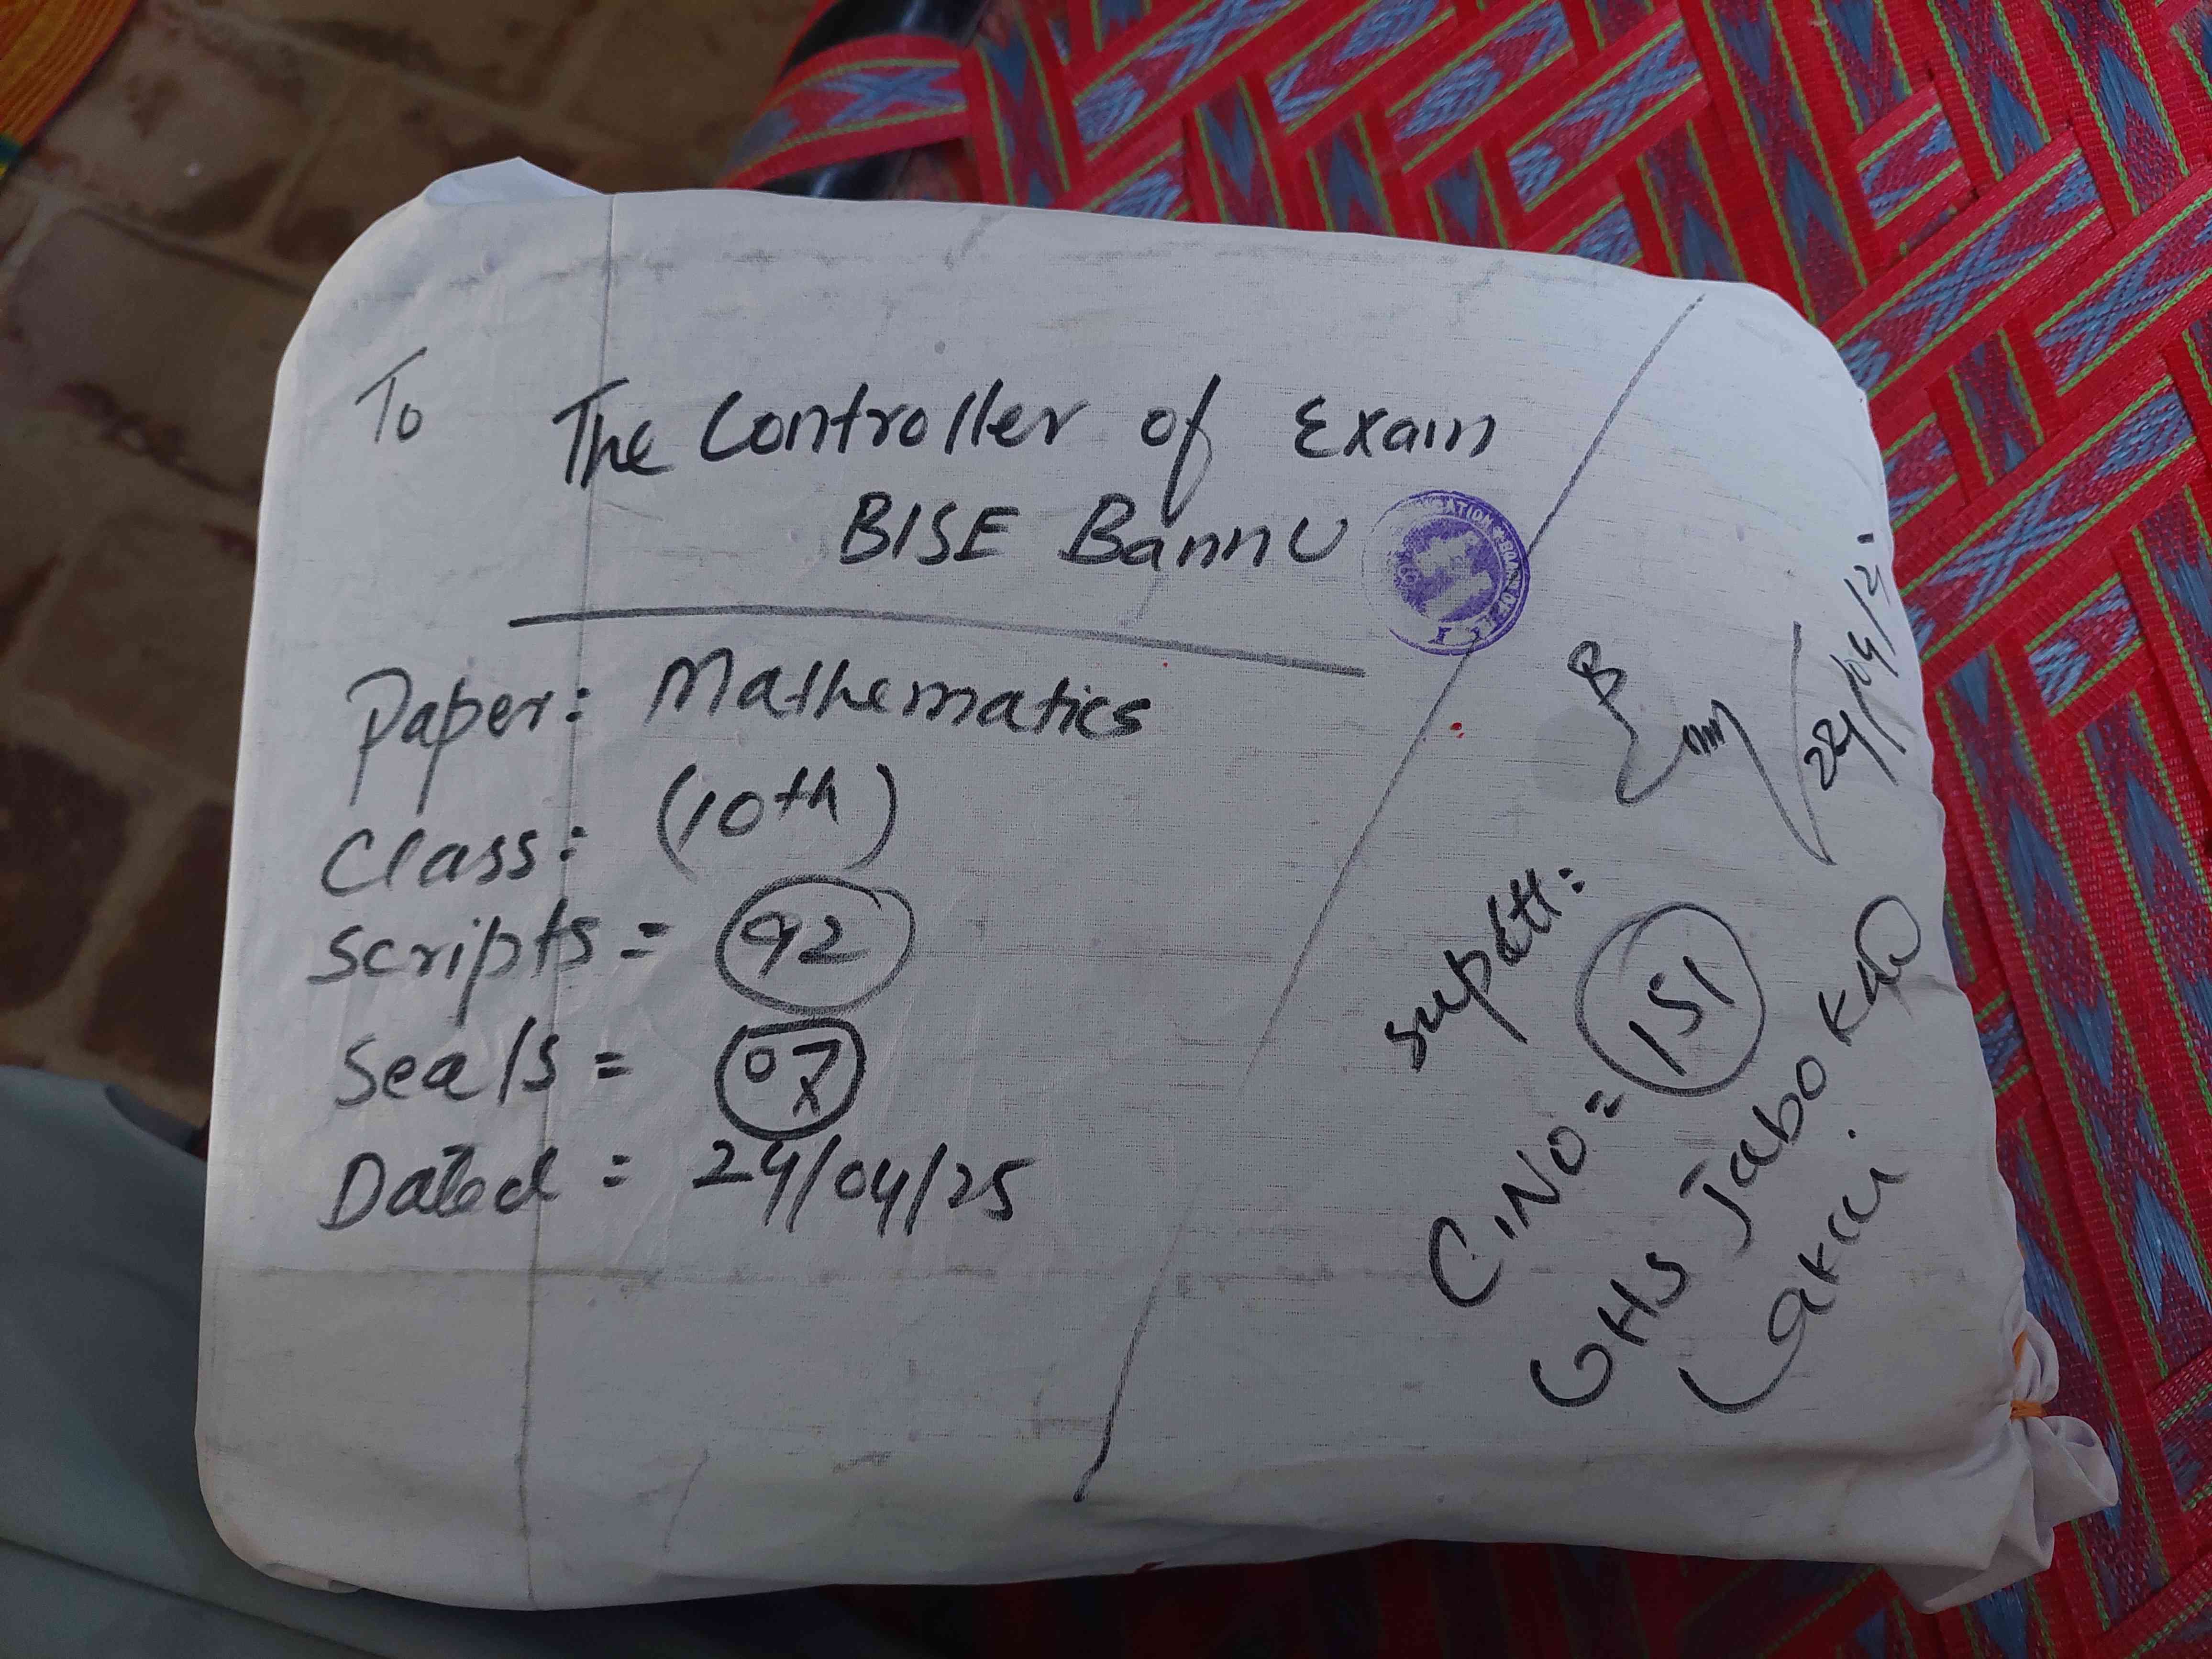 To
The Controller of Exam
BISE Bannu
Paper: Mathematics
Class: (10th)
Scripts = 92
Seals = 07
Dated = 24/04/25
24/04/2
Supdtt:
C.NO = 151
GHS Jabo Khel
Lakki